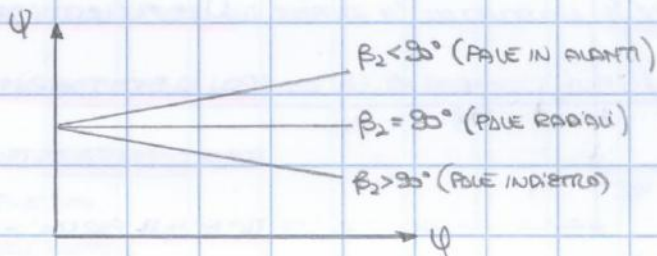 ψ
β₂<90° (PALE IN AVANTI)
β₂=90° (PALE RADIALI)
β₂>90° (PALE INDIETRO)
φ